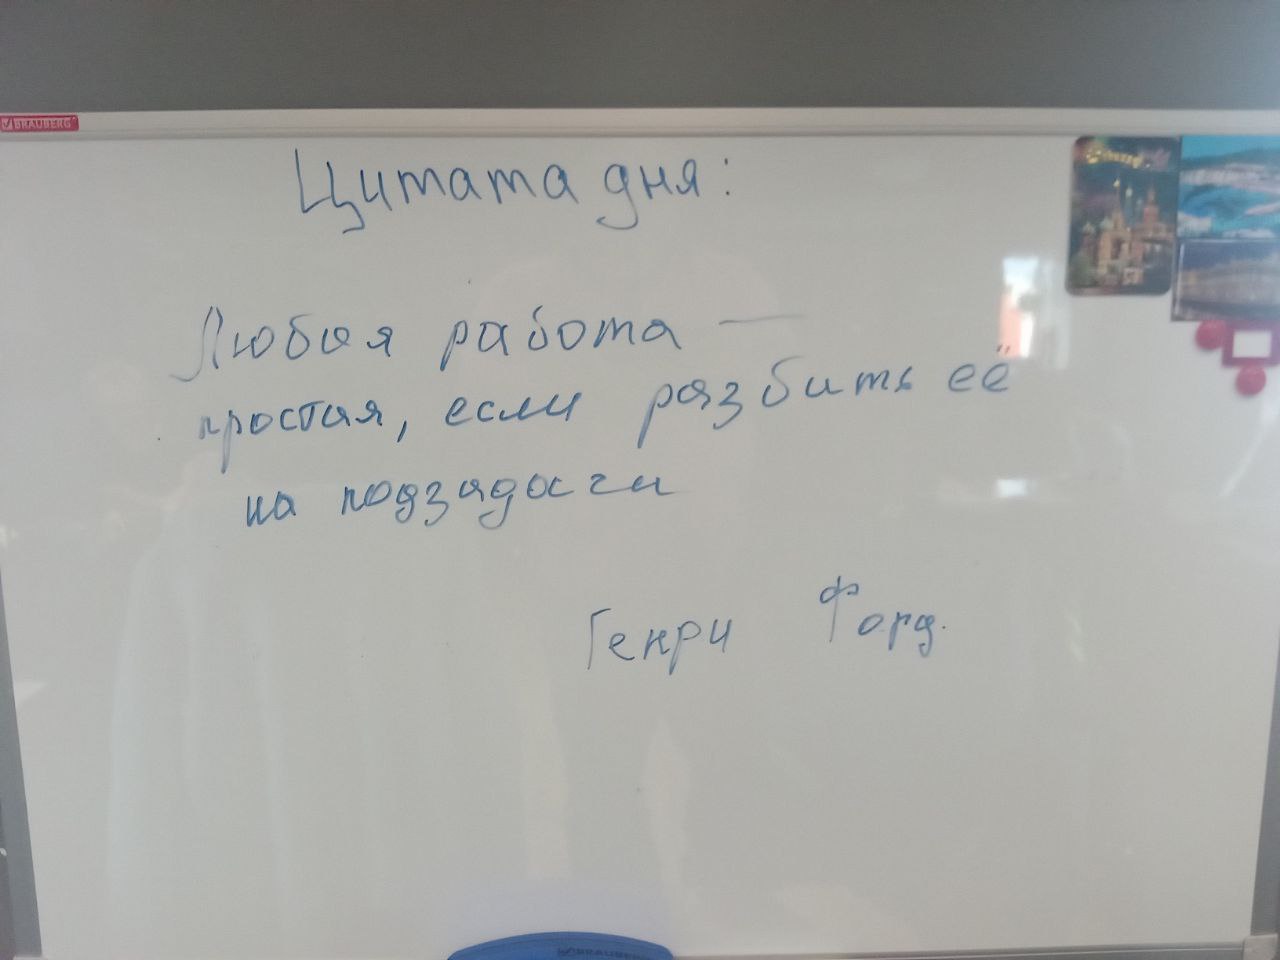 BRAUBERG
Цитата дня:
Любая работа —
простая, если разбить её
на подзадачи
Генри Форд.
BRAUBERG